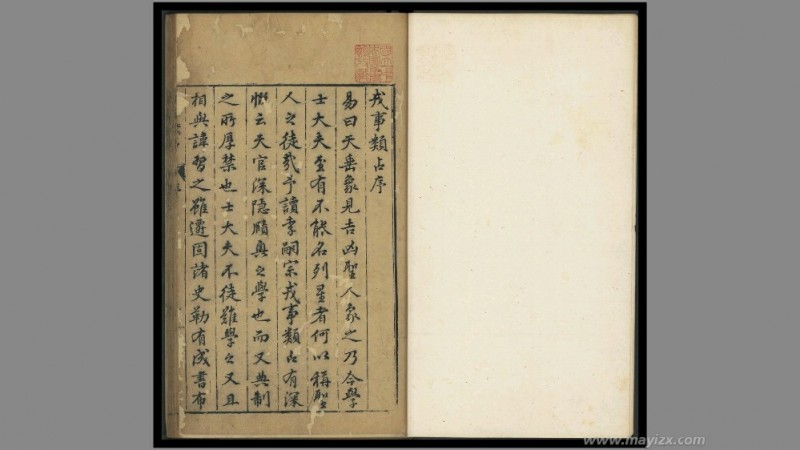 戎事類占序
易曰天垂象見吉凶聖人象之乃今學
士大夫至有不能名列星者何以稱聖
人之徒哉予讀李嗣宗戎事類占有深
慨云天官深隱賾奧之學也而又典制
之所厚禁也士大夫不徒難學之又且
相與諱習之雖遷固諸史勒有成書布
www.mayizx.com